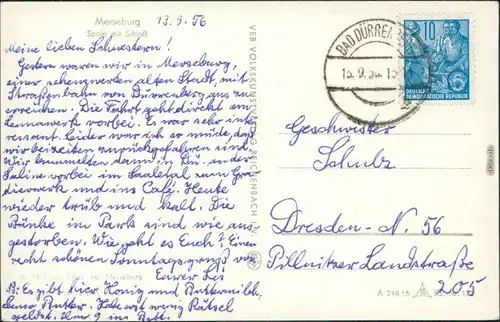 Merseburg
Saale mit Schloß
13.9.56
Meine lieben Schwestern!
Gestern waren wir in Merseburg,
einer sehenswerten alten Stadt, mit
Straßenbahn von Dürrenberg aus zu
erreichen. Die Fahrt geht direkt am
Leunawerk vorbei. Es war sehr inte-
ressant. Leider war ich so müde, daß
wir beizeiten zurückgefahren sind.
Wir bummelten dann in Dü. an der
Saline vorbei im Saaletal zum Gra-
dierwerk und ins Café. Heute
wieder trüb und kalt. Die
Bänke im Park sind wie aus-
gestorben. Wie geht es Euch? Einen
recht schönen Sonntagsgruß von
Eurer
B: Es gibt hier Honig und Buttermilch,
Butter. Habe erst wenig Rätsel
gelöst. 9 im Bett.
VEB VOLKSKUNSTVERLAG REICHENBACH
BAD DÜRRENBERG
13.9.56
10
DEUTSCHE
DEMOKRATISCHE REPUBLIK
Geschwister
Schulz
Dresden-N. 56
Pillnitzer Landstraße
205